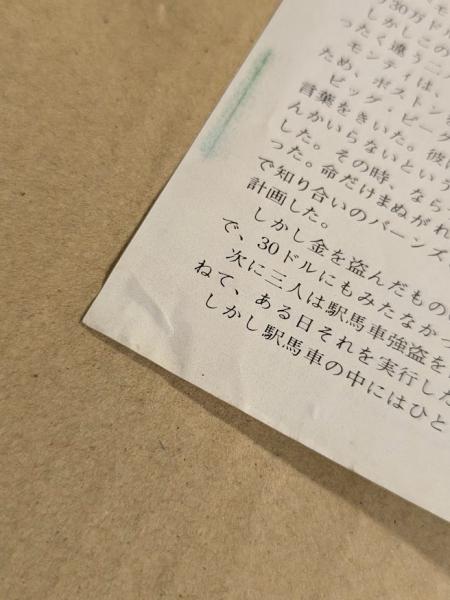 30万ドル
しかしこの
ったく違う二人
モンティは、
ため、ボストン
ビッグ・ビーグ
言葉をきいた。彼
んかいらないという
した。その時、なら
った。命だけまぬがれ
で知り合いのバーンズ
計画した。
しかし金を盗んだもの
で、30ドルにもみたなかっ
次に三人は駅馬車強盗を
ねて、ある日それを実行した
しかし駅馬車の中にはひと